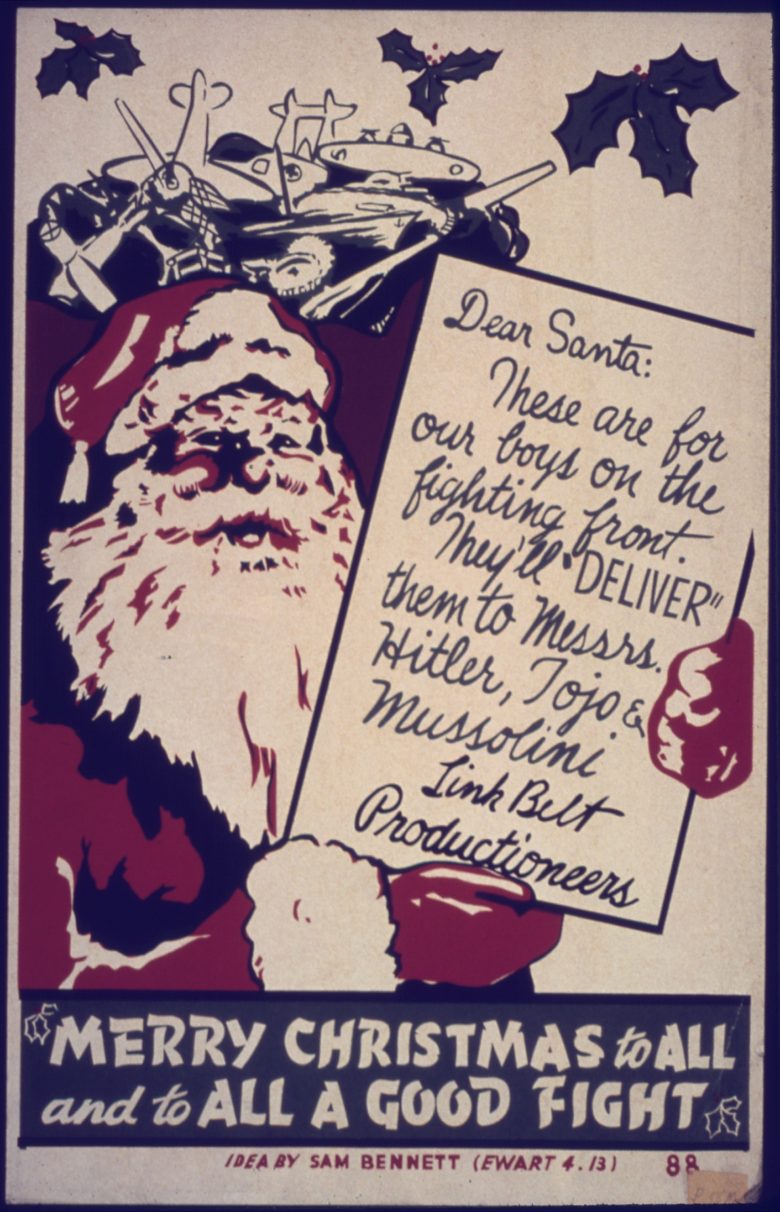 Dear Santa:
These are for
our boys on the
fighting front.
They'll "DELIVER"
them to Messrs.
Hitler, Tojo &
Mussolini
Link Belt
Productioneers
MERRY CHRISTMAS to ALL
and to ALL A GOOD FIGHT
IDEA BY SAM BENNETT (EWART 4.13)
88